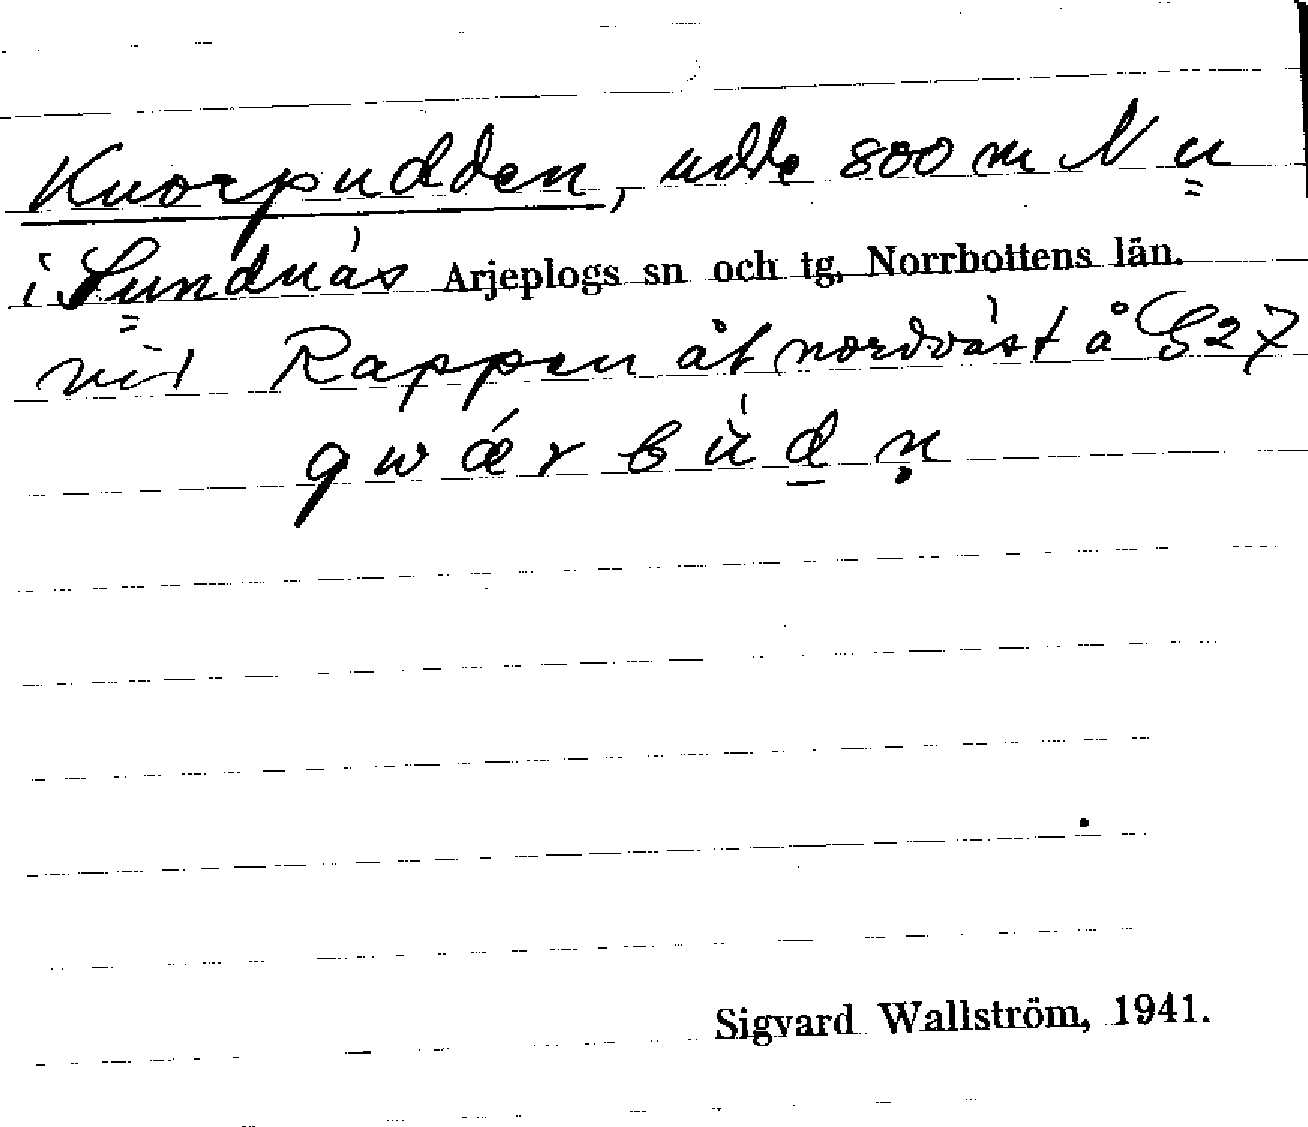 Kuorpudden, udde 800 m N u
i Sundnäs Arjeplogs sn och tg, Norrbottens län.
vid Rappen åt nordväst å G27
Sigvard Wallström, 1941.